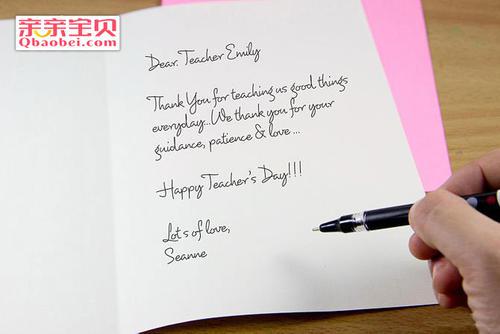 亲亲宝贝
Qbaobei.com
Dear. Teacher Emily
Thank You for teaching us good things
everyday..We thank you for your
guidance, patience & love ...
Happy Teacher's Day!!!
Lots of love,
Seanne